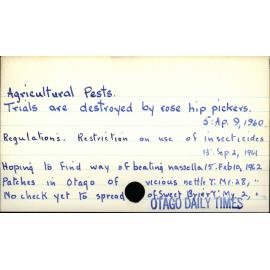 Agricultural Pests.
Trials are destroyed by rose hip pickers.
5. Ap. 9, 1960
Regulations. Restriction on use of insecticides
13. Sep 2, 1961
Hoping to find way of beating nassella. 15. Feb 10, 1962
Patches in Otago of vicious nettle Mr. 28, "
No check yet to spread of Sweet Brier My 2, "
OTAGO DAILY TIMES